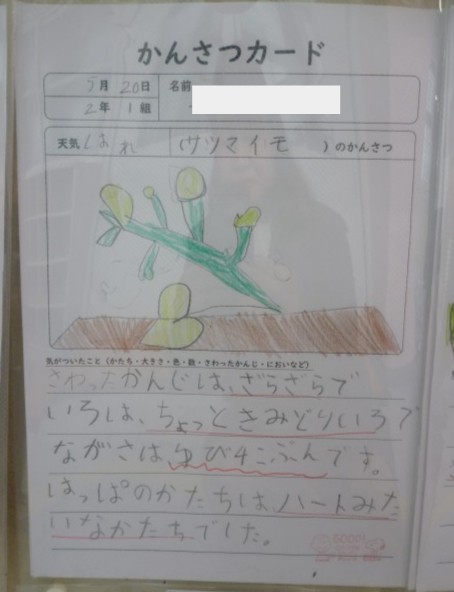 かんさつカード
5月 20日 名前
2年 1組
天気 はれ (サツマイモ )のかんさつ
気がついたこと(かたち・大きさ・色・数・さわったかんじ・においなど)
さわったかんじは、ざらざらで
いろは、ちょっときみどりいろで
ながさはゆび4こぶんです。
はっぱのかたちは、ハートみた
いなかたちでした。
GOOD!